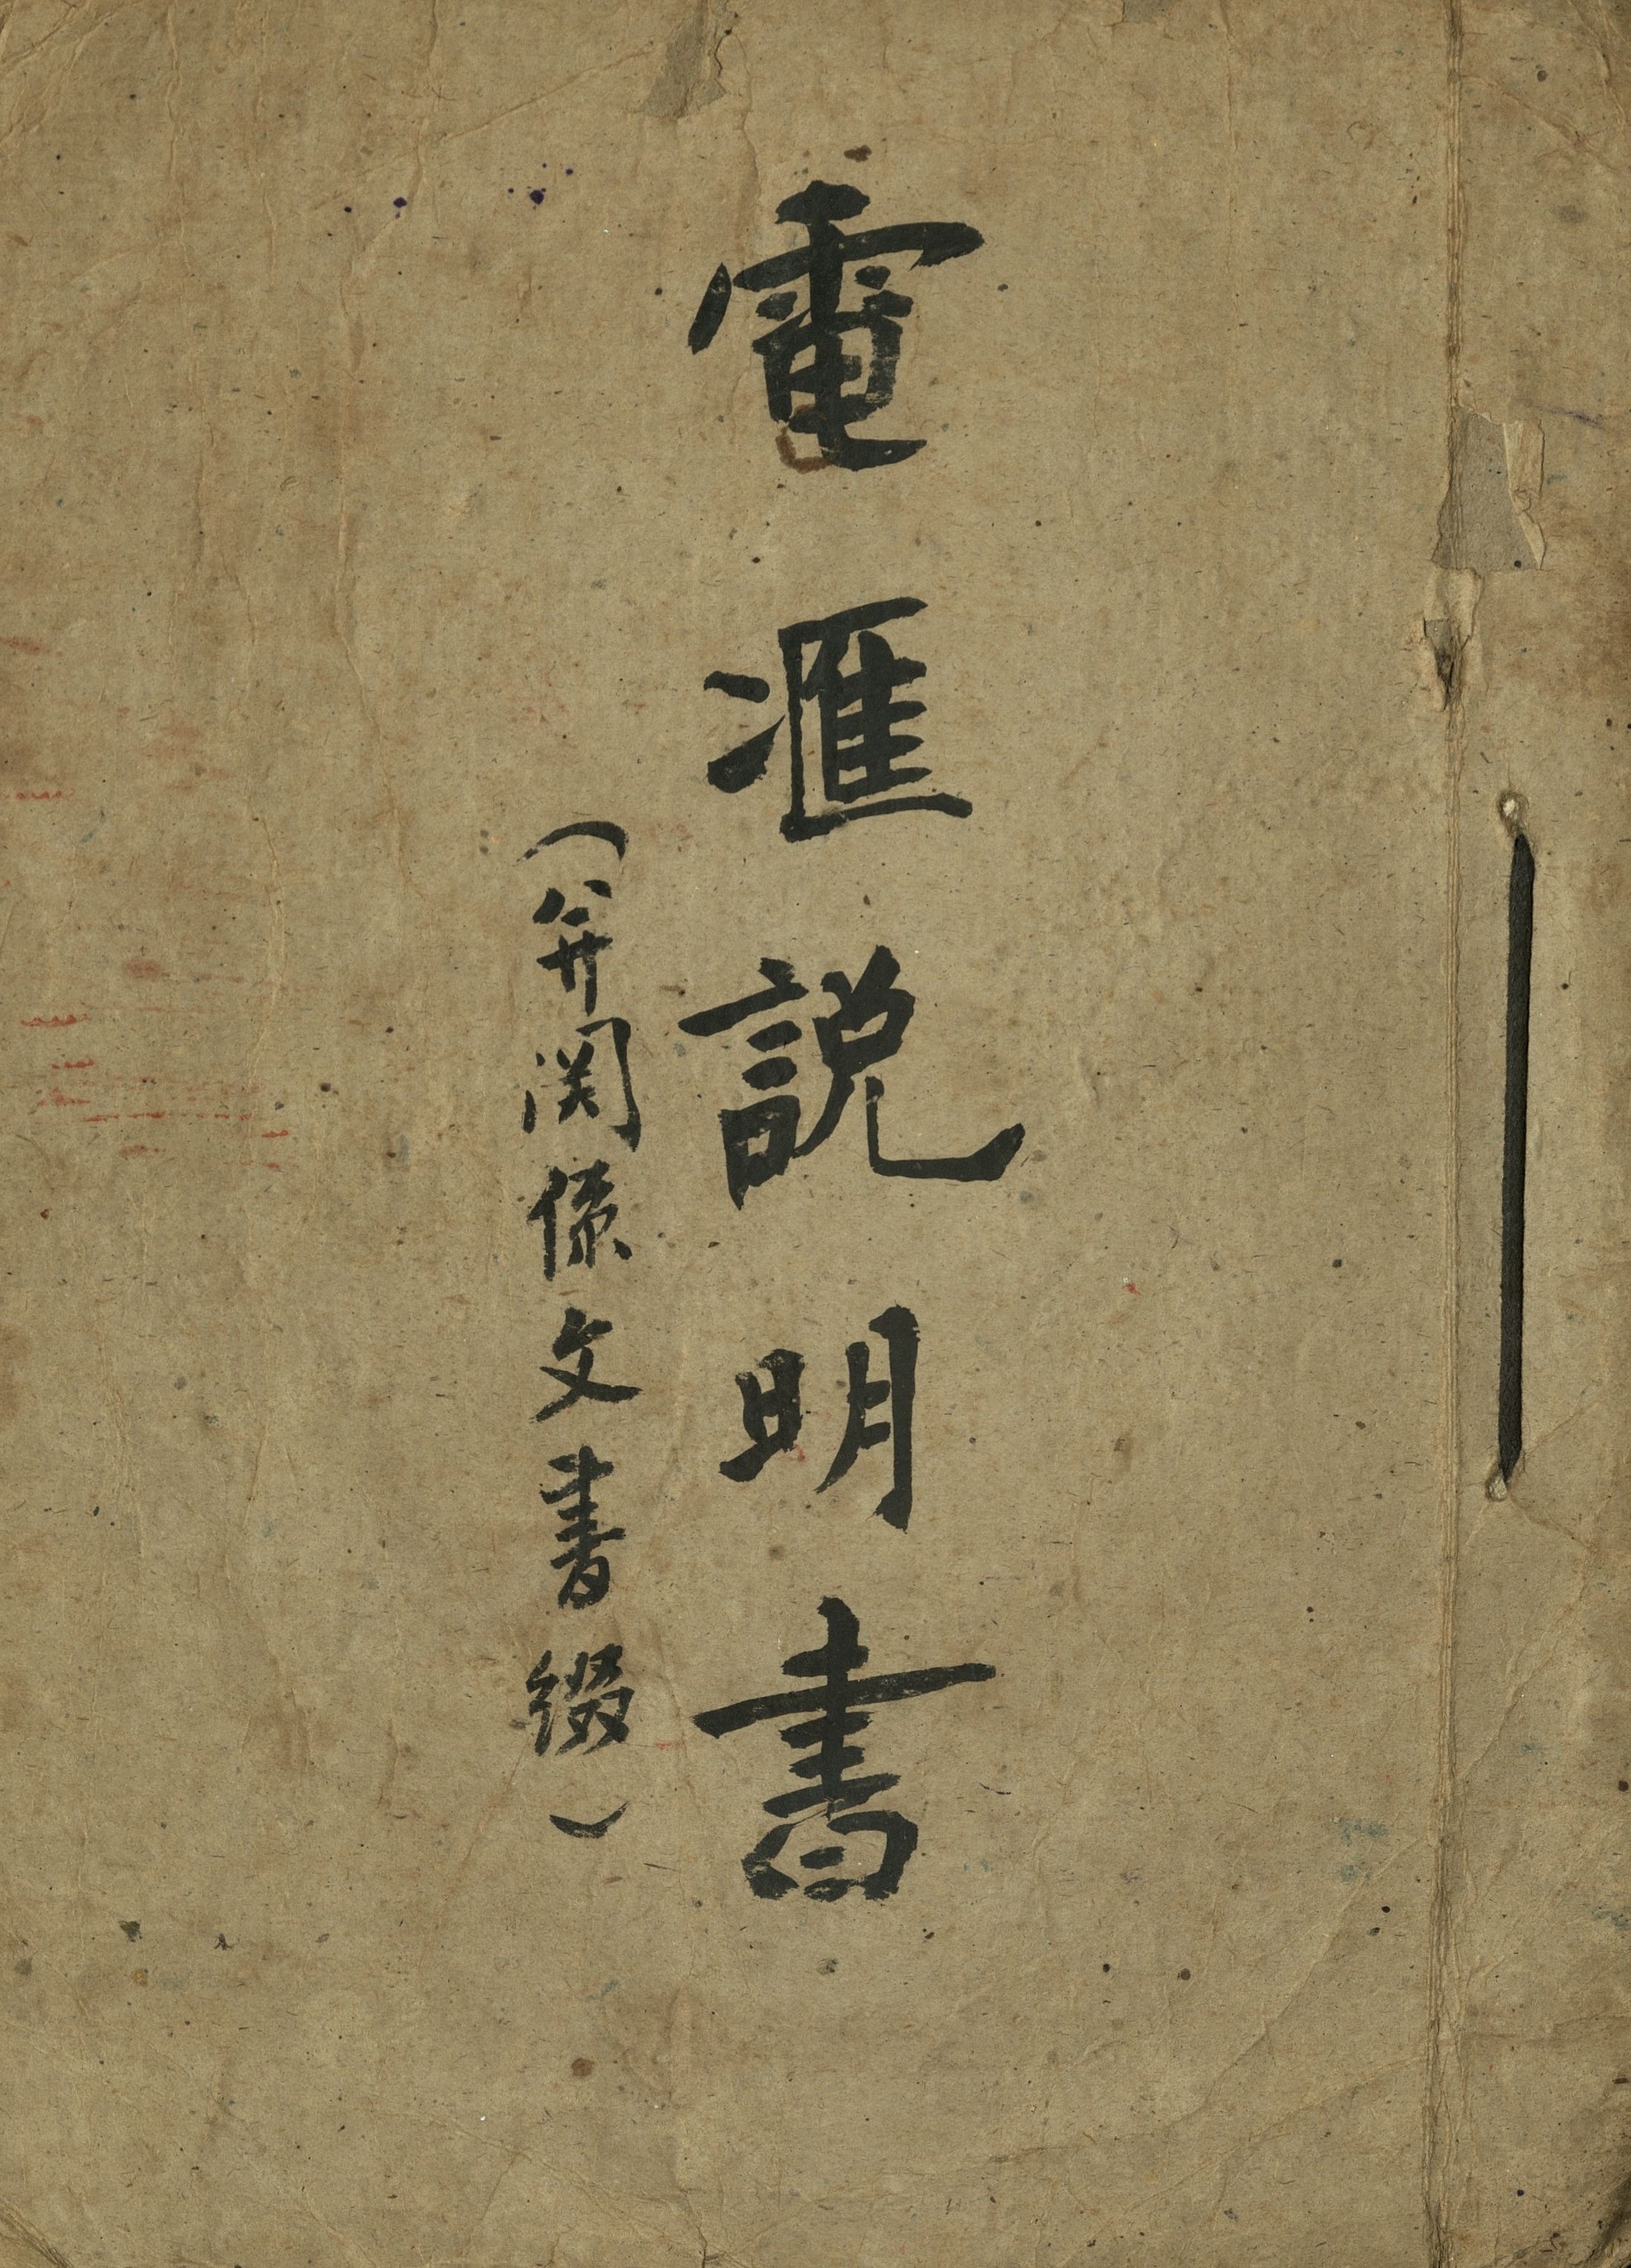 電滙説明書
（并関係文書綴）